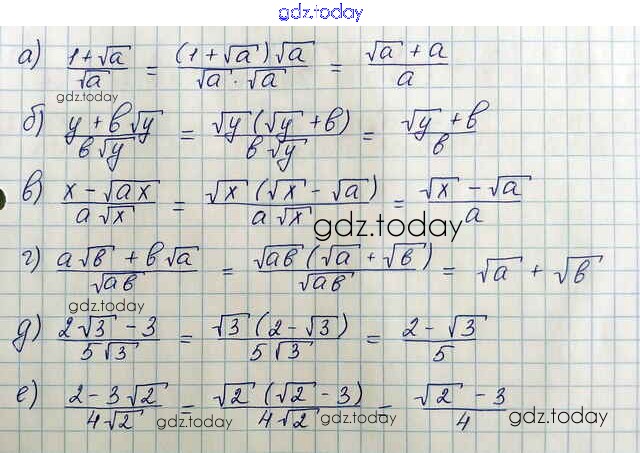 gdz.today
а) (1+√a)/√a = ((1+√a)√a)/(√a · √a) = (√a + a)/a
gdz.today
б) (y + b√y)/(b√y) = (√y(√y + b))/(b√y) = (√y + b)/b
в) (x − √ax)/(a√x) = (√x(√x − √a))/(a√x) = (√x − √a)/a
gdz.today
г) (a√b + b√a)/√ab = (√ab(√a + √b))/√ab = √a + √b
gdz.today
д) (2√3 − 3)/(5√3) = (√3(2 − √3))/(5√3) = (2 − √3)/5
е) (2 − 3√2)/(4√2) = (√2(√2 − 3))/(4√2) = (√2 − 3)/4
gdz.today gdz.today gdz.today